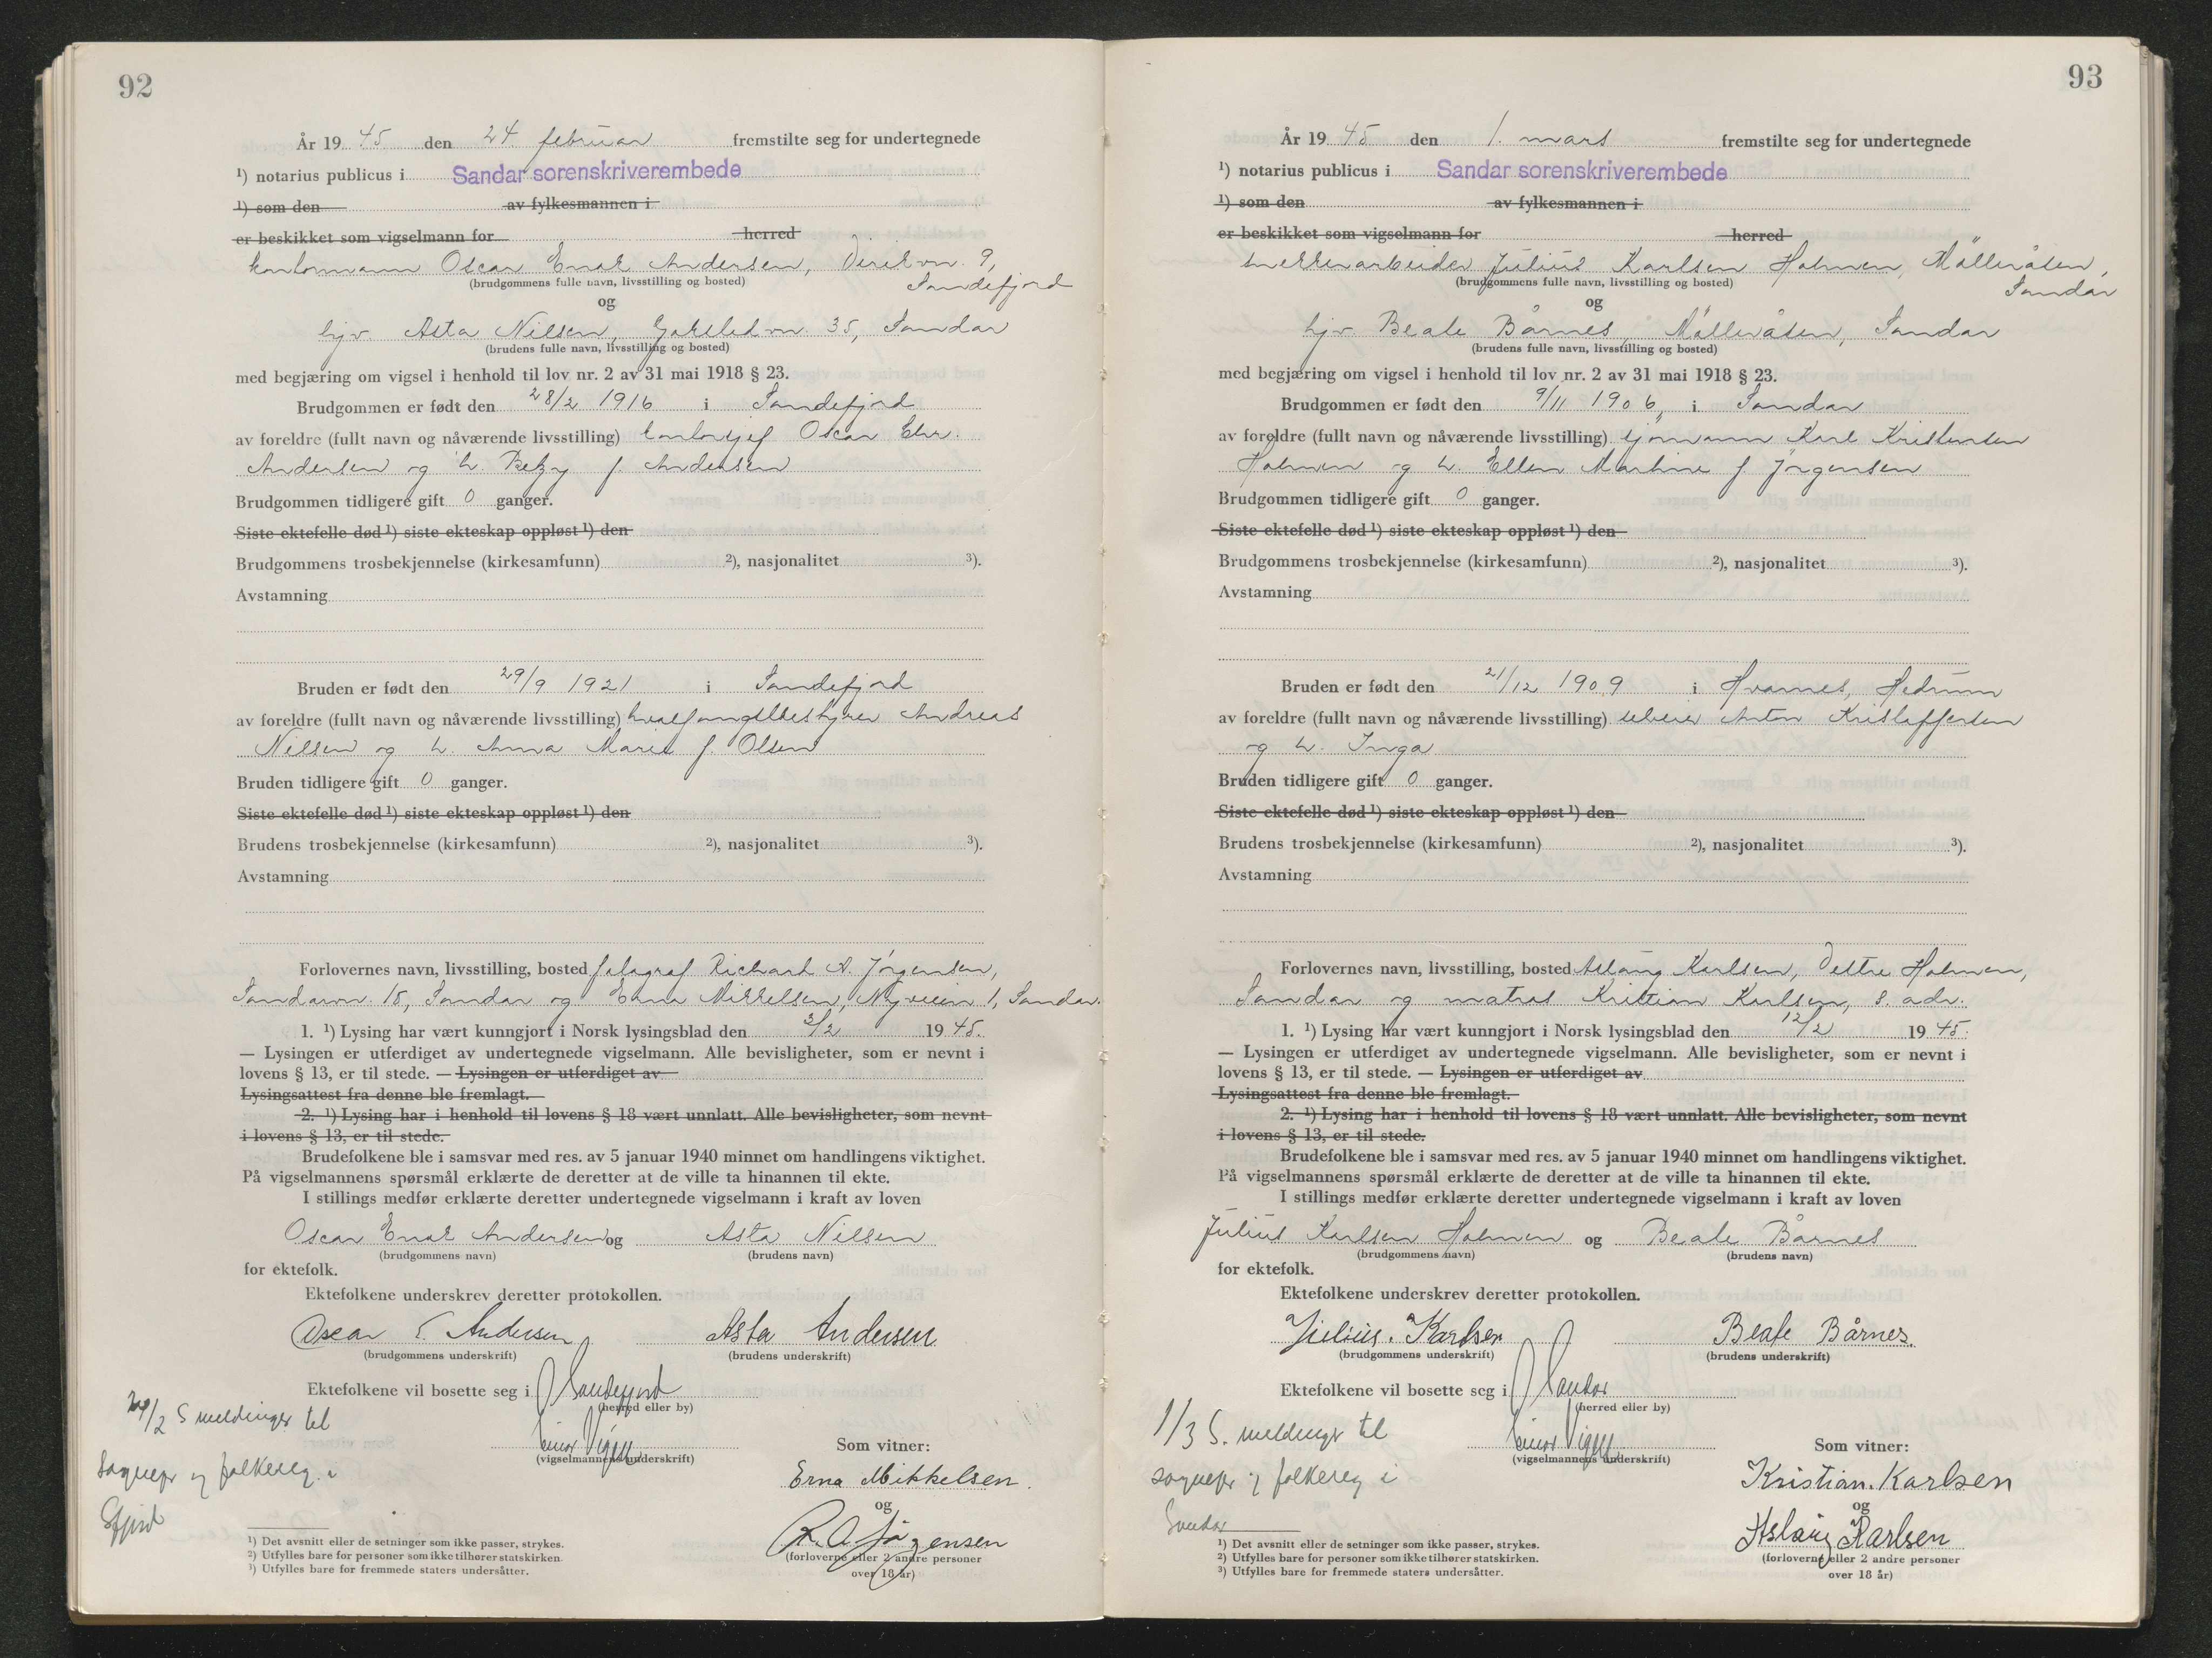 92
År 19 45 den 24. februar fremstilte seg for undertegnede
1) notarius publicus i Sandar sorenskriverembede
1) som den av fylkesmannen i
er beskikket som vigselmann for herred
kontormann Oscar Enok Andersen, 9,
Sandefjord
(brudgommens fulle navn, livsstilling og bosted)
og
hjv. Asta Nilsen, 35, Sandar
(brudens fulle navn, livsstilling og bosted)
med begjæring om vigsel i henhold til lov nr. 2 av 31 mai 1918 § 23.
Brudgommen er født den 28/2 1916 i Sandefjord
av foreldre (fullt navn og nåværende livsstilling) kontorsjef Oscar Chr.
Andersen og h. Betzy f. Andersen
Brudgommen tidligere gift 0 ganger.
Siste ektefelle død 1) siste ekteskap oppløst 1) den
Brudgommens trosbekjennelse (kirkesamfunn) 2), nasjonalitet 3).
Avstamning
Bruden er født den 29/9 1921 i Sandefjord
av foreldre (fullt navn og nåværende livsstilling) hvalfangstbestyrer Andreas
Nilsen og h. Anna Marie f. Olsen
Bruden tidligere gift 0 ganger.
Siste ektefelle død 1) siste ekteskap oppløst 1) den
Brudens trosbekjennelse (kirkesamfunn) 2), nasjonalitet 3).
Avstamning
Forlovernes navn, livsstilling, bosted fotograf Richard A. Jørgensen,
Sandarvn. 18, Sandar og Erna Mikkelsen, Nyveien 1, Sandar.
1. 1) Lysing har vært kunngjort i Norsk lysingsblad den 3/2 19 45.
— Lysingen er utferdiget av undertegnede vigselmann. Alle bevisligheter, som er nevnt i
lovens § 13, er til stede. — Lysingen er utferdiget av
Lysingsattest fra denne ble fremlagt.
2. 1) Lysing har i henhold til lovens § 18 vært unnlatt. Alle bevisligheter, som nevnt
i lovens § 13, er til stede.
Brudefolkene ble i samsvar med res. av 5 januar 1940 minnet om handlingens viktighet.
På vigselmannens spørsmål erklærte de deretter at de ville ta hinannen til ekte.
I stillings medfør erklærte deretter undertegnede vigselmann i kraft av loven
Oscar Enok Andersen og Asta Nilsen
(brudgommens navn) (brudens navn)
for ektefolk.
Ektefolkene underskrev deretter protokollen.
Oscar E. Andersen Asta Andersen
(brudgommens underskrift) (brudens underskrift)
Ektefolkene vil bosette seg i Sandefjord
(herred eller by)
(vigselmannens underskrift)
24/2 S meldinger til
sognepr og folkereg. i
Sfjord
Som vitner:
Erna Mikkelsen.
og
R. A. Jørgensen
(forloverne eller 2 andre personer
over 18 år)
1) Det avsnitt eller de setninger som ikke passer, strykes.
2) Utfylles bare for personer som ikke tilhører statskirken.
3) Utfylles bare for fremmede staters undersåtter.
93
År 19 45 den 1. mars fremstilte seg for undertegnede
1) notarius publicus i Sandar sorenskriverembede
1) som den av fylkesmannen i
er beskikket som vigselmann for herred
snekkerarbeider Julius Karlsen Holmen, Mølleråsen,
Sandar
(brudgommens fulle navn, livsstilling og bosted)
og
hjv. Beate Bårnes, Mølleråsen, Sandar
(brudens fulle navn, livsstilling og bosted)
med begjæring om vigsel i henhold til lov nr. 2 av 31 mai 1918 § 23.
Brudgommen er født den 9/11 1906 i Sandar
av foreldre (fullt navn og nåværende livsstilling) sjømann Karl Kristensen
Holmen og h. Ellen Martine f. Jørgensen
Brudgommen tidligere gift 0 ganger.
Siste ektefelle død 1) siste ekteskap oppløst 1) den
Brudgommens trosbekjennelse (kirkesamfunn) 2), nasjonalitet 3).
Avstamning
Bruden er født den 21/12 1909 i Hvarnes, Hedrum
av foreldre (fullt navn og nåværende livsstilling) selveier Anton Kristoffersen
og h. Inga
Bruden tidligere gift 0 ganger.
Siste ektefelle død 1) siste ekteskap oppløst 1) den
Brudens trosbekjennelse (kirkesamfunn) 2), nasjonalitet 3).
Avstamning
Forlovernes navn, livsstilling, bosted Aslaug Karlsen, Holmen,
Sandar og matros Kristian Karlsen, s. adr.
1. 1) Lysing har vært kunngjort i Norsk lysingsblad den 12/2 19 45.
— Lysingen er utferdiget av undertegnede vigselmann. Alle bevisligheter, som er nevnt i
lovens § 13, er til stede. — Lysingen er utferdiget av
Lysingsattest fra denne ble fremlagt.
2. 1) Lysing har i henhold til lovens § 18 vært unnlatt. Alle bevisligheter, som nevnt
i lovens § 13, er til stede.
Brudefolkene ble i samsvar med res. av 5 januar 1940 minnet om handlingens viktighet.
På vigselmannens spørsmål erklærte de deretter at de ville ta hinannen til ekte.
I stillings medfør erklærte deretter undertegnede vigselmann i kraft av loven
Julius Karlsen Holmen og Beate Bårnes
(brudgommens navn) (brudens navn)
for ektefolk.
Ektefolkene underskrev deretter protokollen.
Julius. Karlsen Beate Bårnes.
(brudgommens underskrift) (brudens underskrift)
Ektefolkene vil bosette seg i Sandar
(herred eller by)
(vigselmannens underskrift)
1/3 S. meldinger til
sognepr og folkereg i
Sandar
Som vitner:
Kristian. Karlsen
og
Aslaug Karlsen
(forloverne eller 2 andre personer
over 18 år)
1) Det avsnitt eller de setninger som ikke passer, strykes.
2) Utfylles bare for personer som ikke tilhører statskirken.
3) Utfylles bare for fremmede staters undersåtter.